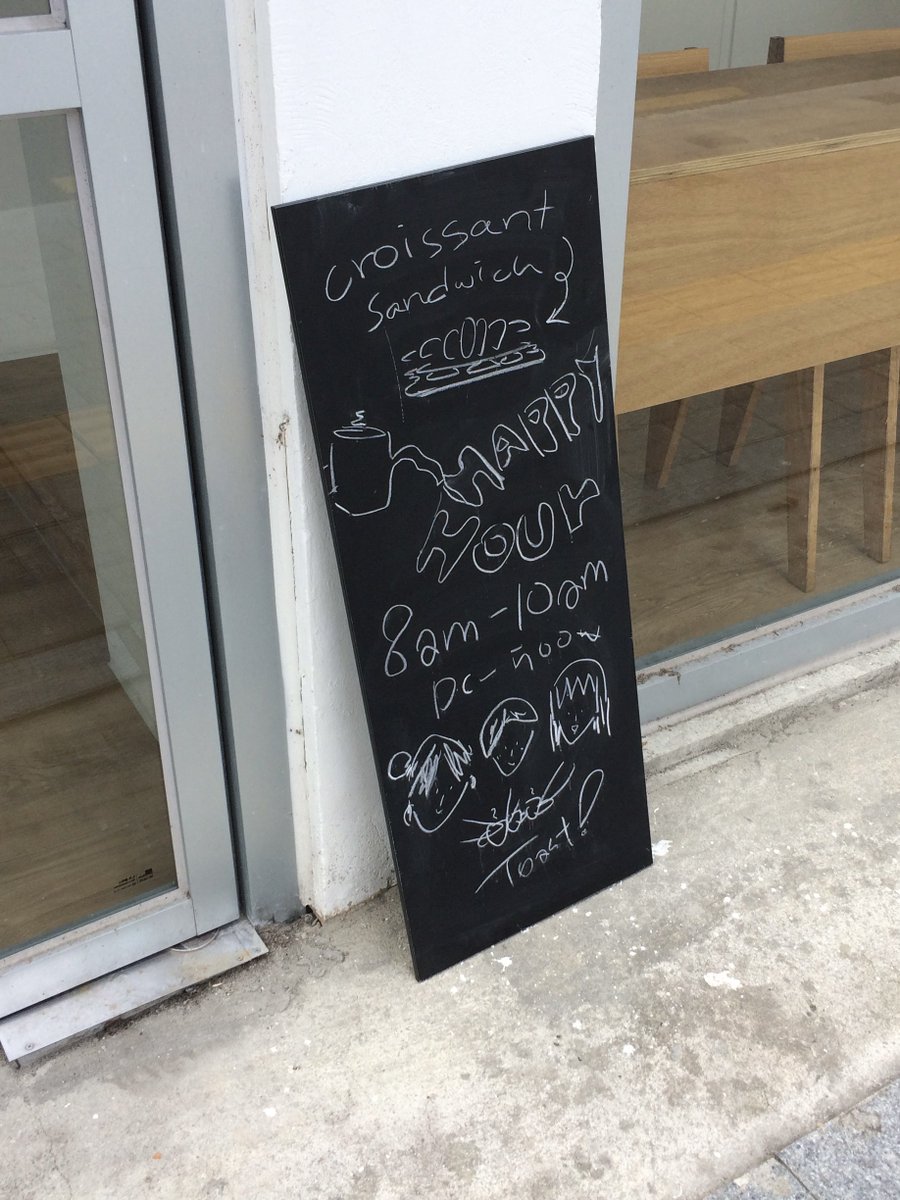 croissant
sandwich
HAPPY
HOUr
8am-10am
DC-
Toast!